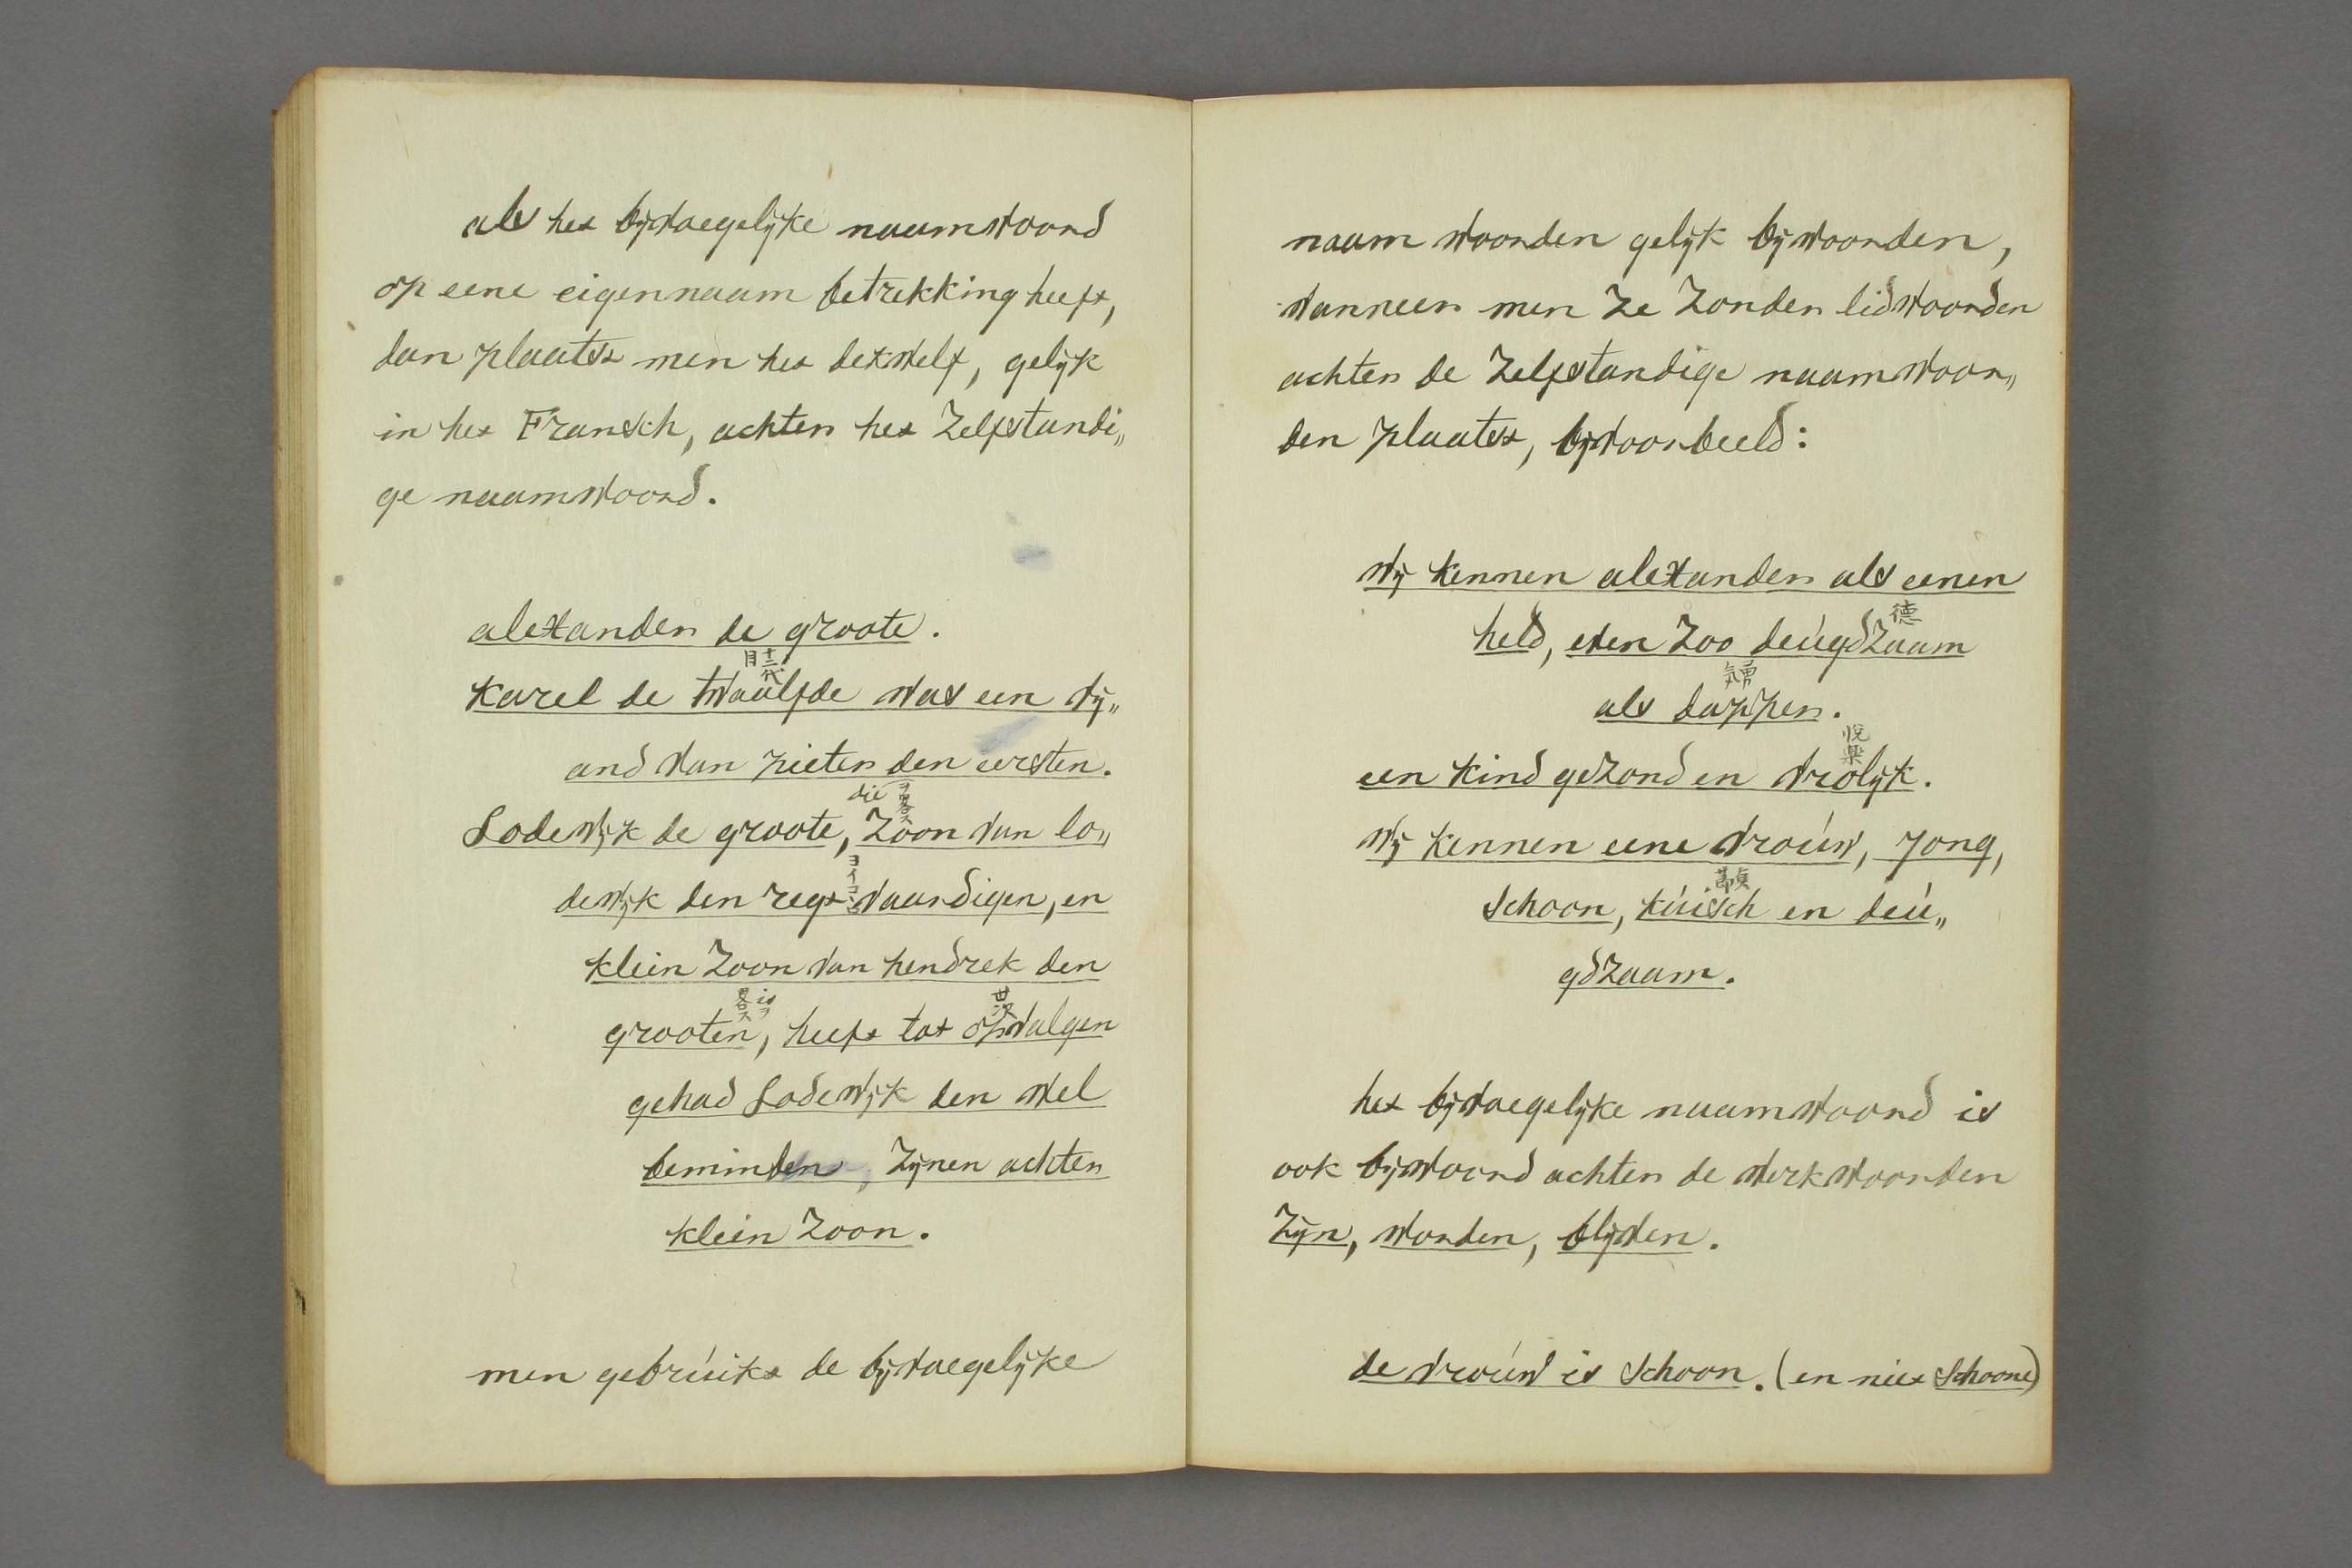 als het bijvoegelijke naamwoord
op eene eigennaam betrekking heeft,
dan plaatst men het dezwelf, gelijk
in het Fransch, achter het Zelfstandi„
ge naamwoord.
alexander de groote.
十二代目
Karel de twaalfde was een vij„
and van pieter den eersten.
die ヲ畧ス
Lodewijk de groote, Zoon van lo„
dewijk den regtvaardigen, en
klein Zoon van hendrek den
畧ス is
grooten, heeft tot opvolger
gehad Lodewijk den wel
beminden, Zijnen achter
klein Zoon.
men gebruikt de bijvoegelijke
naam woorden gelijk bijwoorden,
wanneer men Ze Zonder lidwoorden
achter de Zelfstandige naamwoor„
den plaatst, bijvoorbeeld:
wij kennen alexander als eenen
徳
held, even Zoo deugdZaam
勇気
als dapper.
悦楽
een Kind gezond en vrolijk.
wij kennen eene vrouw, jong,
貞節
schoon, kuisch en deu„
gdZaam.
het bijvoegelijke naamwoord is
ook bijwoord achter de werkwoorden
Zijn, worden, blijven.
de vrouw is schoon. (en niet schoone)